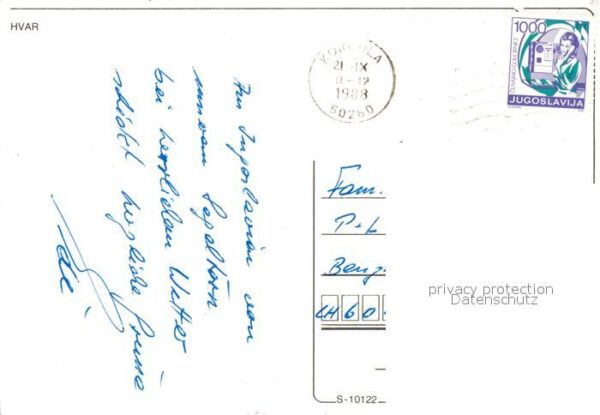 HVAR
KORČULA
21-IX
11-12
1988
50260
1000
JUGOSLAVIJA
Aus Jugoslavien von
unserem Segeltörn
bei herrlichem Wetter
schickt herzliche Grüsse
Fam.
Beng
CH 60
privacy protection
Datenschutz
S-10122